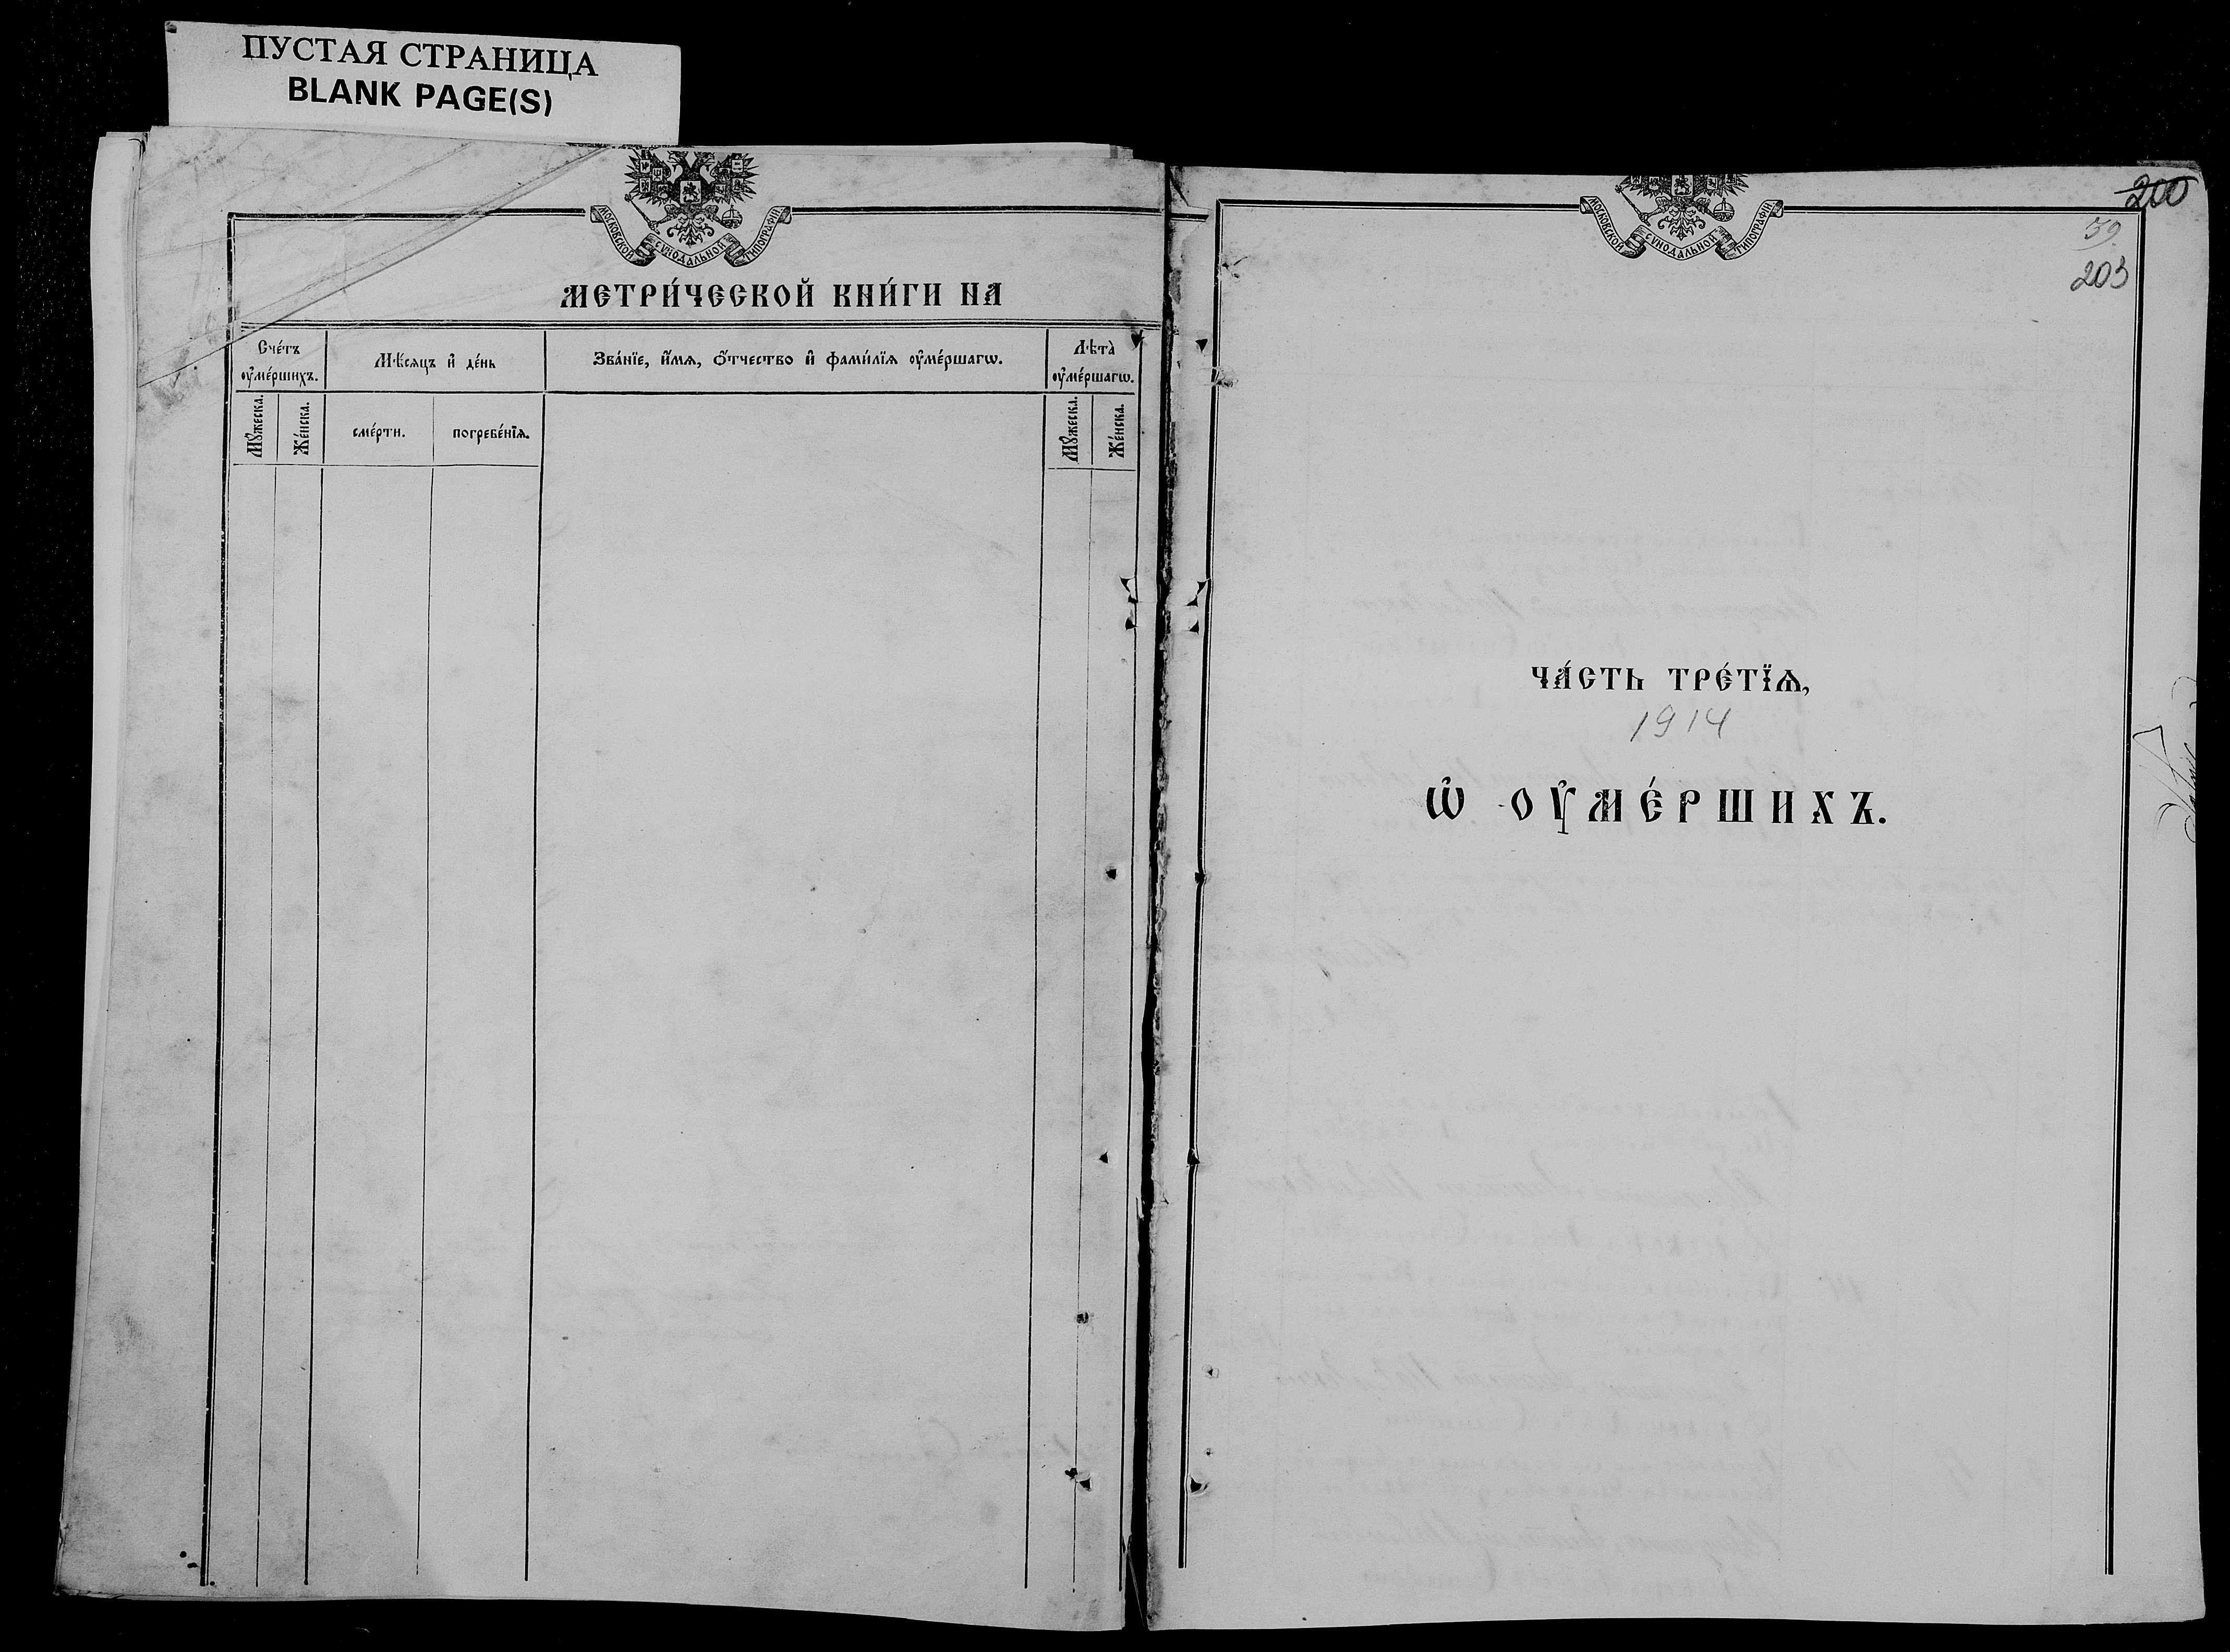 ПУСТАЯ СТРАНИЦА
BLANK PAGE(S)
МОСКОВСКОЙ СѴНОДАЛЬНОЙ ТИПОГРАФІИ
МЕТРИ́ЧЕСКОЙ КНИ́ГИ НА
Сче́тъ ᲂу҆ме́ршихъ.
Мѣ́сяцъ и҆ де́нь
Зва́нїе, и҆́мя, ѻ҆́тчество и҆ фами́лїя ᲂу҆ме́ршагѡ.
Лѣта̀ ᲂу҆ме́ршагѡ.
Мꙋ́жеска.
Же́нска.
сме́рти.
погребе́нїя.
Мꙋ́жеска.
Же́нска.
МОСКОВСКОЙ СѴНОДАЛЬНОЙ ТИПОГРАФІИ
200
39
203
ЧА́СТЬ ТРЕ́ТЇѦ,
1914
Ѡ҆ ОУ҆МЕ́РШИХЪ.